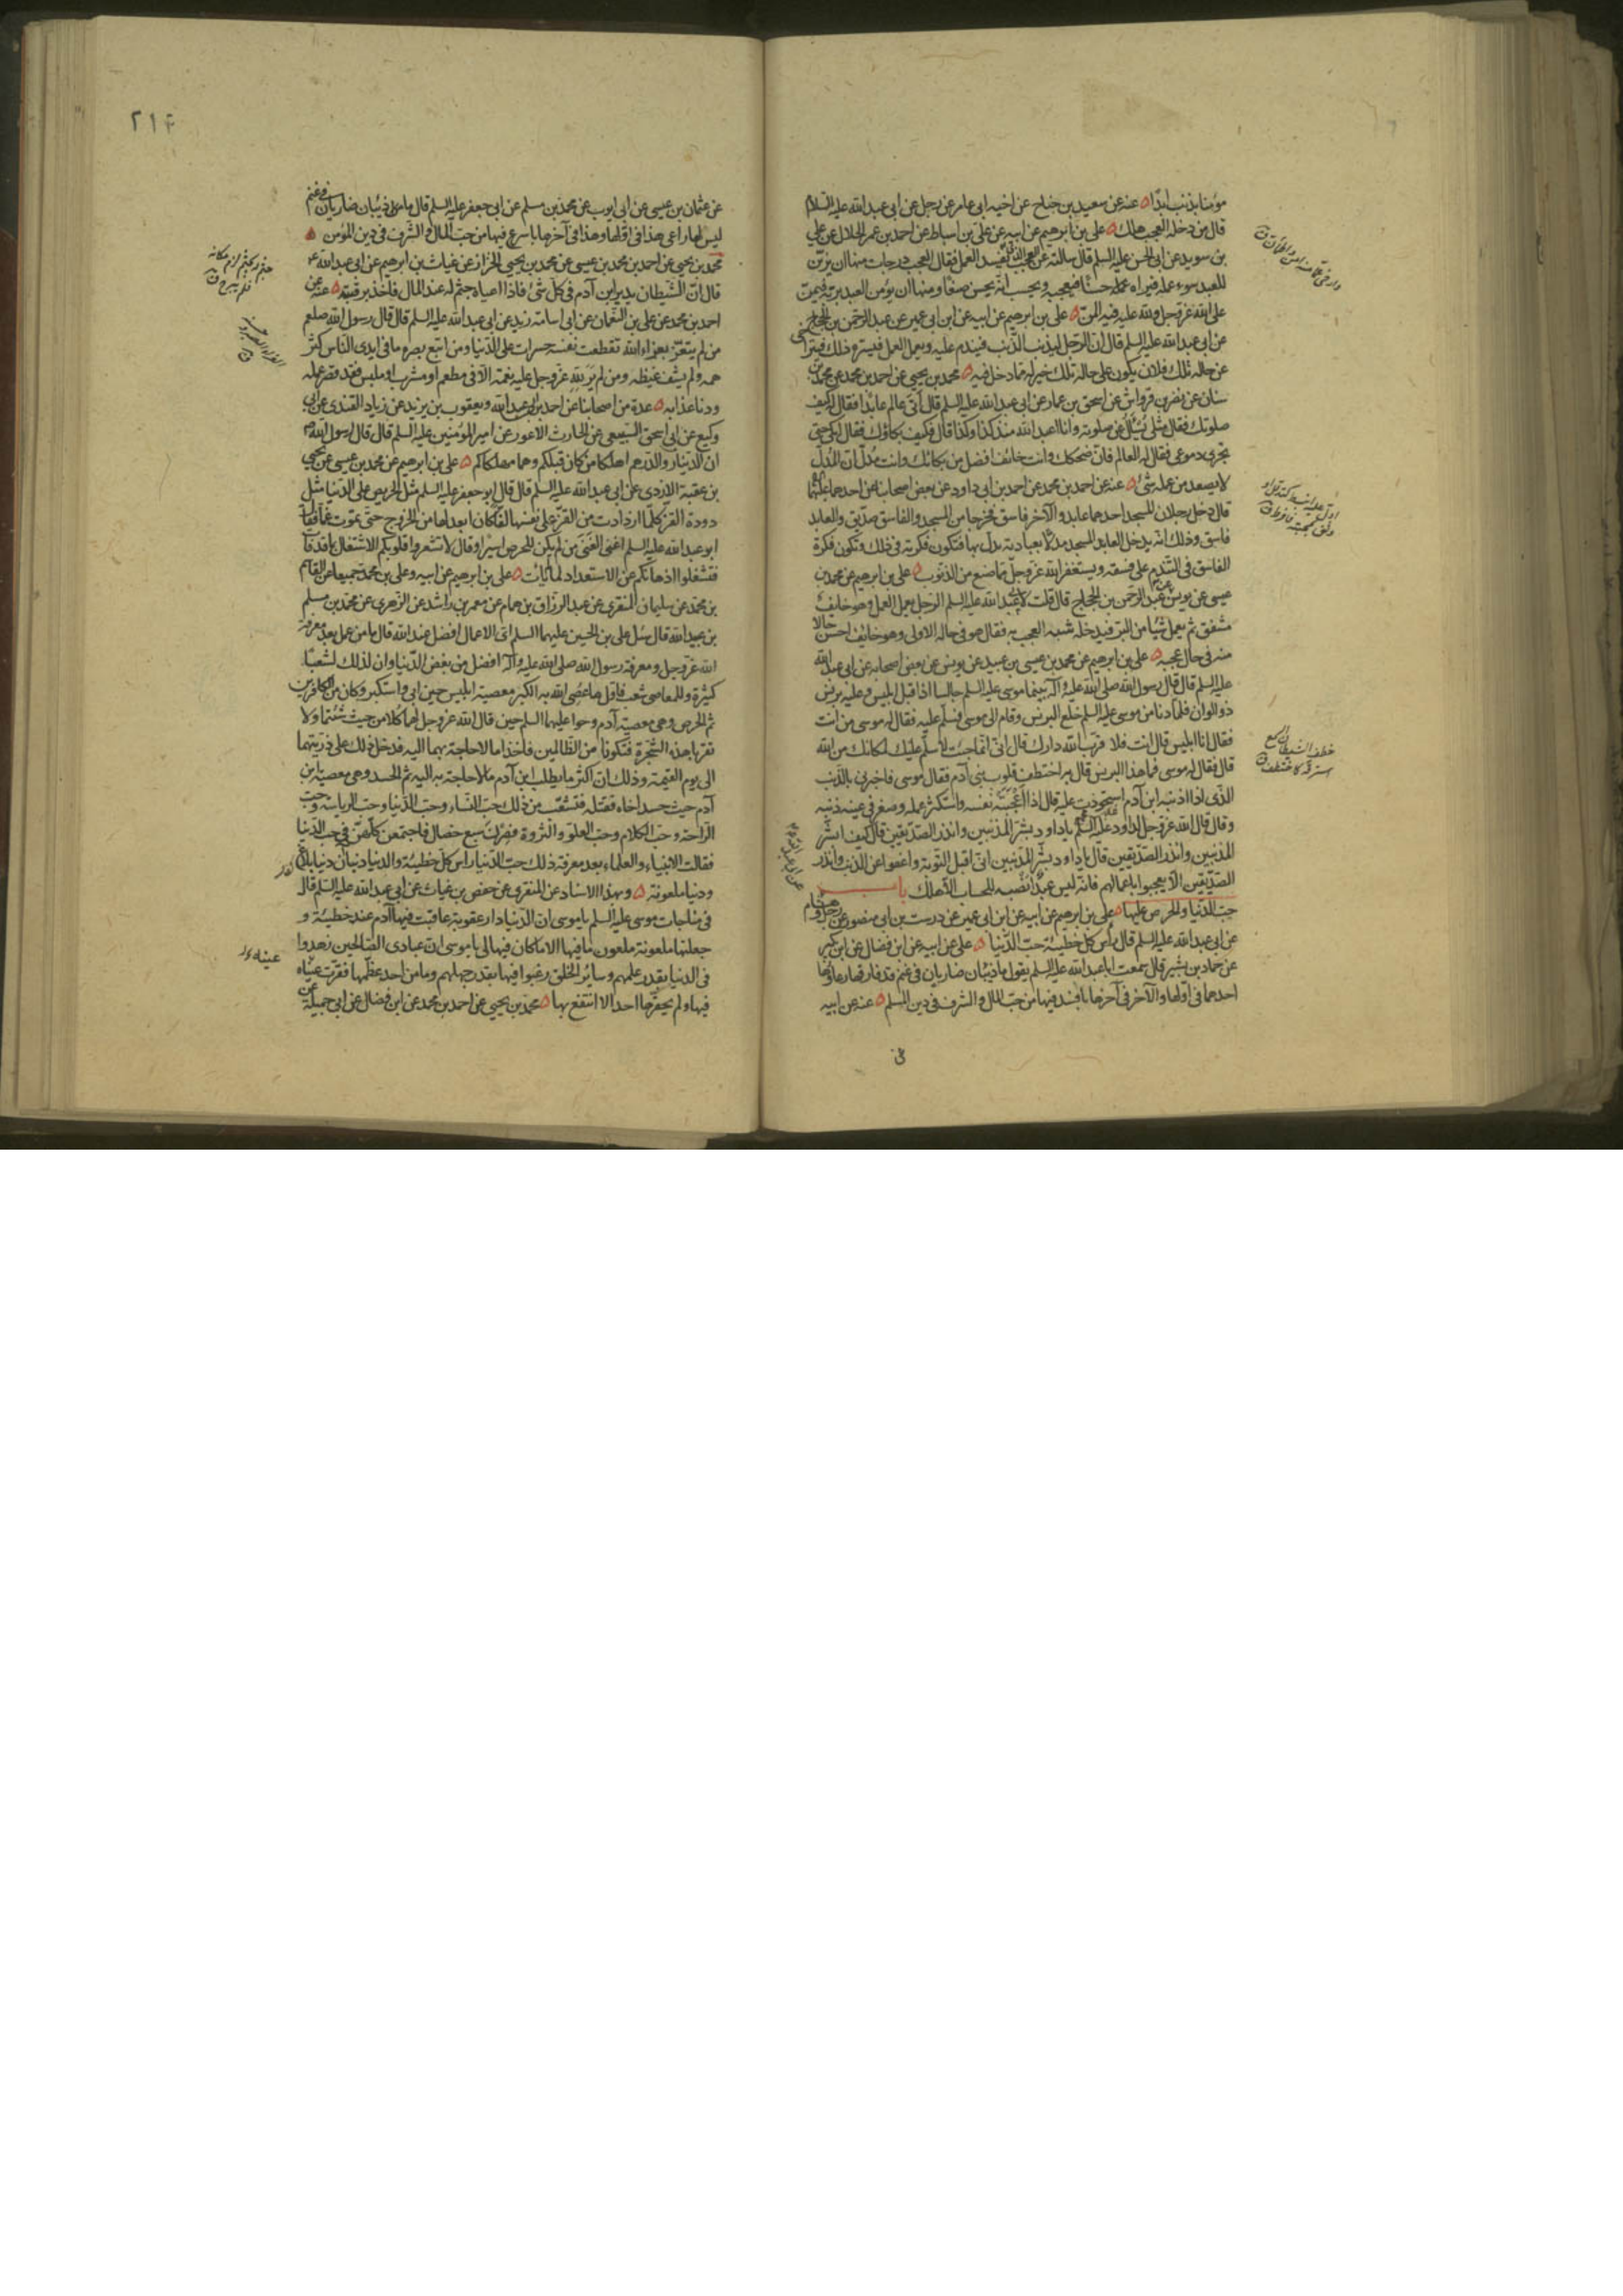 مؤمنا بذنب ابدا ه عنه عن سعيد بن جناح عن اخيه ابى عامر عن رجل عن ابى عبد الله عليه السلام
قال من دخله العجب هلك ه على بن ابرهيم عن ابيه عن على بن اسباط عن احمد بن عمر الحلال عن على
بن سويد عن ابى الحسن عليه السلم قال سالته عن العجب الذى يفسد العمل فقال العجب درجات منها ان يزين
للعبد سوء عمله فيراه حسنا فيعجبه ويحسب انه يحسن صنعا ومنها ان يؤمن العبد بربه فيمن
على الله عز وجل ولله عليه فيه المن ه على بن ابرهيم عن ابيه عن ابن ابى عمير عن عبد الرحمن بن الحجاج
عن ابى عبد الله عليه السلم قال ان الرجل ليذنب الذنب فيندم عليه ويعمل العمل فيسره ذلك فيتراخى
عن حاله تلك فلان يكون على حاله تلك خير له مما دخل فيه ه محمد بن يحيى عن احمد بن محمد عن محمد بن
سنان عن نضر بن قرواش عن اسحق بن عمار عن ابى عبد الله عليه السلم قال اتى عالم عابدا فقال له كيف
صلوتك فقال مثلى يسئل عن صلوته وانا اعبد الله منذ كذا وكذا قال فكيف بكاؤك فقال ابكى حتى
تجرى دموعى فقال له العالم فان ضحكك وانت خائف افضل من بكائك وانت مدل ان المدل
لا يصعد من عمله شئ ه عنه عن احمد بن محمد عن احمد بن ابى داود عن بعض اصحابنا عن احدهما عليهما
قال دخل رجلان المسجد احدهما عابد والآخر فاسق فخرجا من المسجد والفاسق صديق والعابد
فاسق وذلك انه يدخل العابد المسجد مدلا بعبادته يدل بها فتكون فكرته فى ذلك وتكون فكرة
الفاسق فى التندم على فسقه ويستغفر الله عز وجل مما صنع من الذنوب ه على بن ابرهيم عن محمد بن
عيسى عن يونس عن عبد الرحمن بن الحجاج قال قلت لابى عبد الله عليه السلم الرجل يعمل العمل وهو خايف
مشفق ثم يعمل شيئا من البر فيدخله شبه العجب به فقال هو فى حاله الاولى وهو خايف احسن حالا
منه فى حال عجبه ه على بن ابرهيم عن محمد بن عيسى بن عبيد عن يونس عن بعض اصحابه عن ابى عبد الله
عليه السلم قال قال رسول الله صلى الله عليه وآله بينما موسى عليه السلم جالسا اذ اقبل ابليس وعليه برنس
ذو الوان فلما دنا من موسى عليه السلم خلع البرنس وقام الى موسى فسلم عليه فقال له موسى من انت
فقال انا ابليس قال انت فلا قرب الله دارك قال انى انما جئت لاسلم عليك لمكانك من الله
قال فقال له موسى فما هذا البرنس قال به اختطف قلوب بنى آدم فقال موسى فاخبرنى بالذنب
الذى اذا اذنبه ابن آدم استحوذت عليه قال اذا اعجبته نفسه واستكثر عمله وصغر فى عينه ذنبه
وقال قال الله عز وجل لداود عليه السلم يا داود بشر المذنبين وانذر الصديقين قال كيف ابشر
المذنبين وانذر الصديقين قال يا داود بشر المذنبين انى اقبل التوبة واعفو عن الذنب وانذر
الصديقين الا يعجبوا باعمالهم فانه ليس عبد انصبه للحساب الا هلك باب
حب الدنيا والحرص عليها ه على بن ابرهيم عن ابيه عن ابن ابى عمير عن درست بن ابى منصور عن رجل وهشام
عن ابى عبد الله عليه السلم قال رأس كل خطيئة حب الدنيا ه على عن ابيه عن ابن فضال عن ابن بكير
عن حماد بن بشير قال سمعت ابا عبد الله عليه السلم يقول ما ذئبان ضاريان فى غنم قد فارقها رعاؤها
احدهما فى اولها والآخر فى آخرها بافسد فيها من حب المال والشرف فى دين المسلم ه عنه عن ابيه
عن
٢١۴
عن عثمان بن عيسى عن ابى ايوب عن محمد بن مسلم عن ابى جعفر عليه السلم قال ما من ذئبان ضاريان فى غنم
ليس لها راعى هذا فى اولها وهذا فى آخرها باسرع فيها من حب المال والشرف فى دين المؤمن ه
محمد بن يحيى عن احمد بن محمد بن عيسى عن محمد بن يحيى الخزاز عن غياث بن ابرهيم عن ابى عبد الله ع
قال ان الشيطان يدير ابن آدم فى كل شئ فاذا اعياه جثم له عند المال فاخذ برقبته ه عنه عن
احمد بن محمد عن على بن النعمان عن ابى اسامة زيد عن ابى عبد الله عليه السلم قال قال رسول الله صلعم
من لم يتعز بعزاء الله تقطعت نفسه حسرات على الدنيا ومن اتبع بصره ما فى ايدى الناس كثر
همه ولم يشف غيظه ومن لم ير لله عز وجل عليه نعمة الا فى مطعم او مشرب او ملبس فقد قصر عمله
ودنا عذابه ه عدة من اصحابنا عن احمد بن ابى عبد الله ويعقوب بن يزيد عن زياد القندى عن ابى
وكيع عن ابى اسحق السبيعى عن الحارث الاعور عن امير المؤمنين عليه السلم قال قال رسول الله ص
ان الدينار والدرهم اهلكا من كان قبلكم وهما مهلكاكم ه على بن ابرهيم عن محمد بن عيسى عن يحيى
بن عقبة الازدى عن ابى عبد الله عليه السلم قال قال ابو جعفر عليه السلم مثل الحريص على الدنيا مثل
دودة القز كلما ازدادت من القز على نفسها لفا كان ابعد لها من الخروج حتى تموت غما وقال
ابو عبد الله عليه السلم اغنى الغنى من لم يكن للحرص اسيرا وقال لا تشعروا قلوبكم الاشتغال بما قد فات
فتشغلوا اذهانكم عن الاستعداد لما لم يات ه على بن ابرهيم عن ابيه وعلى بن محمد جميعا عن القاسم
بن محمد عن سليمان المنقرى عن عبد الرزاق بن همام عن معمر بن راشد عن الزهرى عن محمد بن مسلم
بن عبيد الله قال سئل على بن الحسين عليهما السلم اى الاعمال افضل عند الله قال ما من عمل بعد معرفة
الله عز وجل ومعرفة رسول الله صلى الله عليه وآله افضل من بغض الدنيا وان لذلك لشعبا
كثيرة وللمعاصى شعب فاول ما عصى الله به الكبر معصية ابليس حين ابى واستكبر وكان من الكافرين
ثم الحرص وهى معصية آدم وحوا عليهما السلم حين قال الله عز وجل لهما كلا من حيث شئتما ولا
تقربا هذه الشجرة فتكونا من الظالمين فاخذا ما لا حاجة بهما اليه فدخل ذلك على ذريتهما
الى يوم القيمة وذلك ان اكثر ما يطلب ابن آدم ما لا حاجة به اليه ثم الحسد وهى معصية ابن
آدم حيث حسد اخاه فقتله فتشعب من ذلك حب النساء وحب الدنيا وحب الرياسة وحب
الراحة وحب الكلام وحب العلو والثروة فصرن سبع خصال فاجتمعن كلهن فى حب الدنيا
فقالت الانبياء والعلماء بعد معرفة ذلك حب الدنيا راس كل خطيئة والدنيا دنياآن دنيا بلاغ
ودنيا ملعونة ه وبهذا الاسناد عن المنقرى عن حفص بن غياث عن ابى عبد الله عليه السلم قال
فى مناجات موسى عليه السلم يا موسى ان الدنيا دار عقوبة عاقبت فيها آدم عند خطيئته و
جعلتها ملعونة ملعون ما فيها الا ما كان فيها لى يا موسى ان عبادى الصالحين زهدوا
فى الدنيا بقدر علمهم وساير الخلق رغبوا فيها بقدر جهلهم وما من احد عظمها فقرت عيناه
فيها ولم يحقرها احد الا انتفع بها ه محمد بن يحيى عن احمد بن محمد عن ابن فضال عن ابى جميلة عن